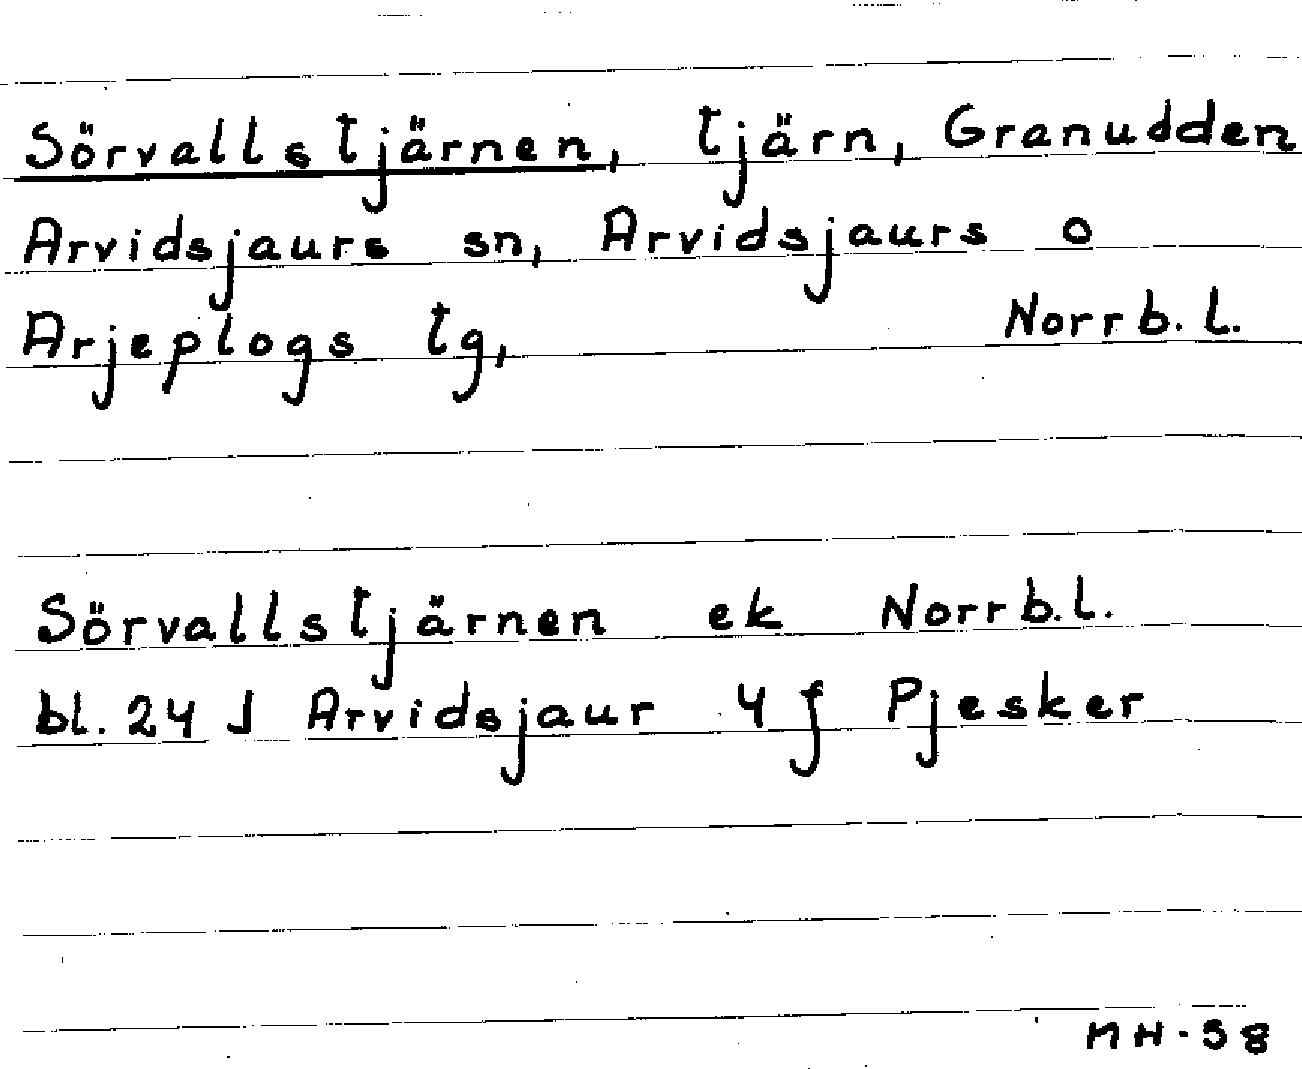 Sörvallstjärnen, tjärn, Granudden
Arvidsjaurs sn, Arvidsjaurs o
Arjeplogs tg, Norrb.l.
Sörvallstjärnen ek Norrb.l.
bl. 24 J Arvidsjaur 4 f Pjesker
MH-98